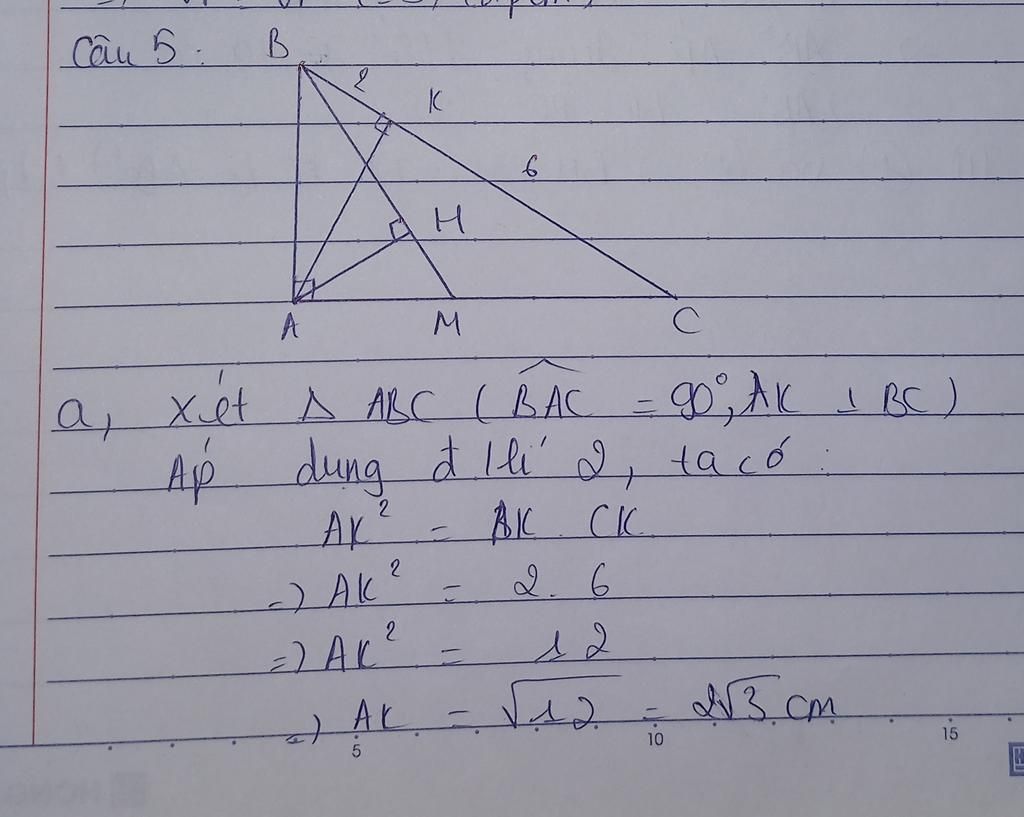 Câu 5 :
B
2
K
6
H
A
M
C
a, xét Δ ABC ( \widehat{BAC} = 90°, AK ⊥ BC )
Áp dụng đ/lí 2, ta có :
AK² = BK . CK
=) AK² = 2. 6
=) AK² = 12
=) AK = √12 = 2√3 cm
5
10
15